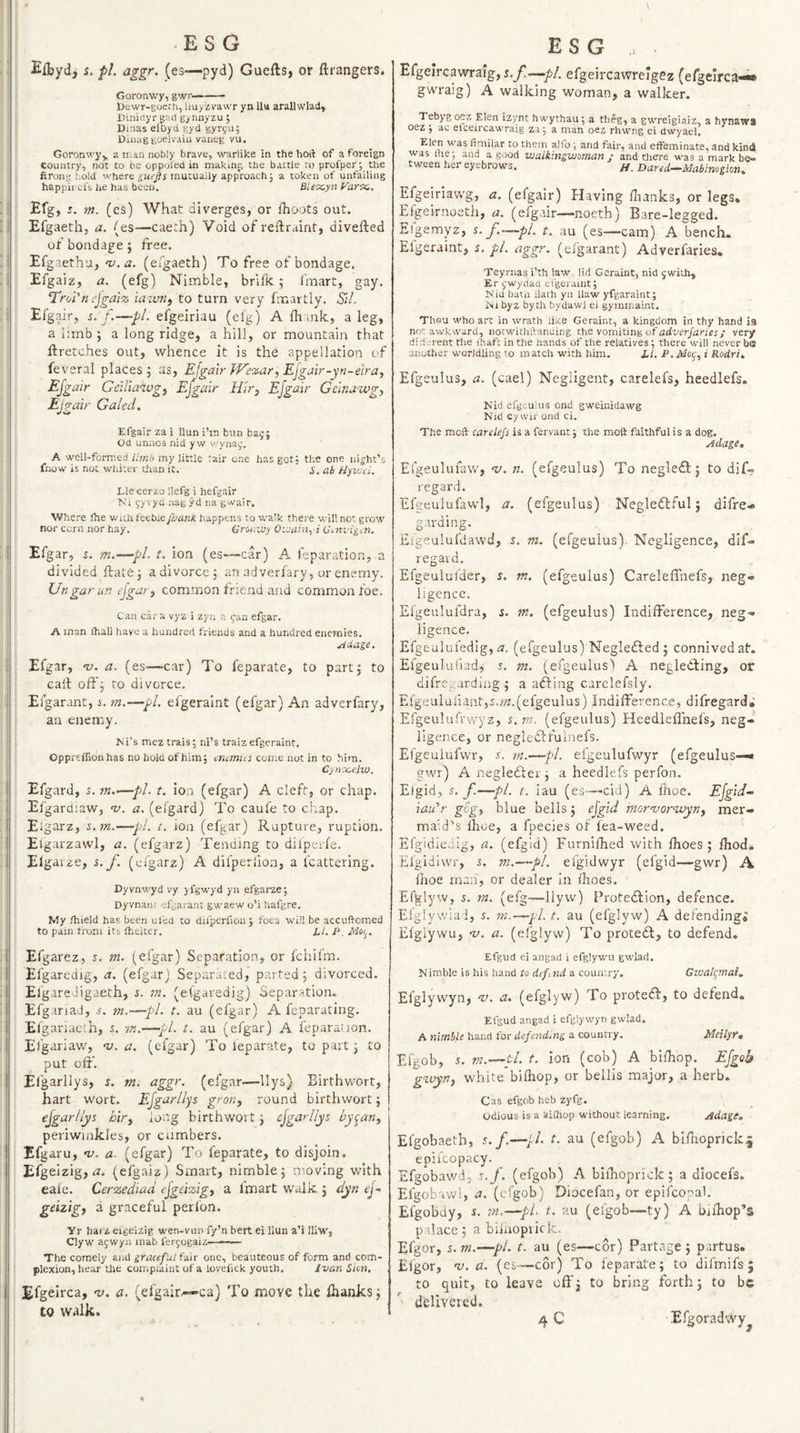 ESG
Eſbyd, s. pl. aggr. (es—pyd) Gueſts, or ſtrangers.
Goronwy, gwr———
Dewr-goeth, liuyzvawr yn llu arallwlad,
Dinidyr gad gynnyzu;
Dinas eſbyd gyd gyrçu;
Dinag goelvain vaneg vu.
Goronwy, a man nobly brave, warlike in the hoſt of a foreign
country, not to be oppoſed in making the battle to proſper; the
ſtrong hold where gueſts mutually approach; a token of unfailing
happineſs he has been. Blezyn Varz.
Eſg, s. m. (es) What diverges, or ſhoots out.
Eſgaeth, a. (es—caeth) Void of reſtraint, diveſted
of bondage; free.
Eſgaethu, v. a. (eſgaeth) To free of bondage.
Eſgaiz, a. (eſg) Nimble, briſk; ſmart, gay.
Troi'n eſgaiz iawn, to turn very ſmartly. Sil.
Eſgair, s. f.—pl. eſgeiriau (eſg) A ſhank, a leg,
a limb; a long ridge, a hill, or mountain that
ſtretches out, whence it is the appellation of
ſeveral places; as, Eſgair Wezar, Eſgair-yn-eira,
Eſgair Geiliawg, Eſgair Hir, Eſgair Geinawg,
Eſgair Galed.
Eſgair za i llun i'm bun baç;
Od unnos nid yw wynaç.
A well-formed limb my little fair one has got; the one night's
ſnow is not whiter than it. S. ab Hywel.
Lle cerzo lleſg i heſgair
Ni çyvyd nag ŷd na gwair.
Where ſhe with feeble ſhank happens to walk there will not grow
nor corn nor hay. Gronwy Owain, i Genvigen.
Eſgar, s. m.—pl. t. ion (es—câr) A ſeparation, a
divided ſtate; a divorce; an adverſary, or enemy.
Un gar un eſgar, common friend and common foe.
Can câr a vyz i zyn a çan eſgar.
A man ſhall have a hundred friends and a hundred enemies.
Adage.
Eſgar, v. a. (es—car) To ſeparate, to part; to
caſt off; to divorce.
Eſgarant, s. m.—pl. eſgeraint (eſgar) An adverſary,
an enemy.
Ni's mez trais; ni's traiz eſgeraint.
Oppreſſion has no hold of him; enemies come not in to him.
Cynzelw.
Eſgard, s. m.—pl. t. ion (eſgar) A cleft, or chap.
Eſgardiaw, v. a. (eſgard) To cauſe to chap.
Eſgarz, s. m.—pl. t. ion (eſgar) Rupture, ruption.
Eſgarzawl, a. (eſgarz) Tending to diſperſe.
Eſgarze, s. f. (eſgarz) A diſperſion, a ſcattering.
Dyvnwyd vy yſgwyd yn eſgarze;
Dyvnant eſgarant gwaew o'i haſgre.
My ſhield has been uſed to diſperſion; foes will be accuſtomed
to pain from its ſhelter. Ll. P. Moç.
Eſgarez, s. m. (eſgar) Separation, or ſchiſm.
Eſgaredig, a. (eſgar) Separated, parted; divorced.
Eſgaredigaeth, s. m. (eſgaredig) Separation.
Eſgariad, s. m.—pl. t. au (eſgar) A ſeparating.
Eſgariaeth, s. m.—pl. t. au (eſgar) A ſeparation.
Eſgariaw, v. a. (eſgar) To ſeparate, to part; to
put off.
Eſgarllys, s. m. aggr. (eſgar—llys) Birthwort,
hart wort. Eſgarllys gron, round birthwort;
eſgarllys hir, long birthwort; eſgarllys byçan,
periwinkles, or cumbers.
Eſgaru, v. a. (eſgar) To ſeparate, to disjoin.
Eſgeizig, a. (eſgaiz) Smart, nimble; moving with
eaſe. Cerzediad eſgeizig, a ſmart walk; dyn eſ-
geizig, a graceful perſon.
Yr harz eſgeizig wen-vun ſy'n bert ei llun a'i lliw,
Clyw açwyn mab ſerçogaiz———
The comely and graceful fair one, beauteous of form and com-
plexion, hear the complaint of a loveſick youth. Ivan Sion.
Eſgeirca, v. a. (eſgair—ca) To move the ſhanks;
to walk.
ESG
Eſgeircawraig, s. f.—pl. eſgeircawreigez (eſgeirca—
gwraig) A walking woman, a walker.
Tebyg oez Elen izynt hwythau; a thêg, a gwreigiaiz, a hynaws
oez; ac eſceircawraig za; a man oez rhwng ei dwyael.
Elen was ſimilar to them alſo; and fair, and effeminate, and kind
was ſhe; and a good walkingwoman; and there was a mark be-
tween her eyebrows. H. Dared—Mabinogion.
Eſgeiriawg, a. (eſgair) Having ſhanks, or legs.
Eſgeirnoeth, a. (eſgair—noeth) Bare-legged.
Eſgemyz, s. f.—pl. t. au (es—cam) A bench.
Eſgeraint, s. pl. (eſgarant) Adverſaries.
Teyrnas i'th law, lid Geraint, nid çwith,
Er çwydad eſgeraint;
Nid bath llath yn llaw yſgaraint;
Ni byz byth bydawl ei gymmaint.
Thou who art in wrath like Geraint, a kingdom in thy hand is
not awkward, notwithſtanding the vomiting of adverſaries; very
different the ſhaft in the hands of the relatives; there will never be
another worldling to match with him. Ll. P. Moç, i Rodri.
Eſgeulus, a. (cael) Negligent, careleſs, heedleſs.
Nid eſgeulus ond gweinidawg
Nid cywir ond ci.
The moſt careleſs is a ſervant; the moſt faithful is a dog.
Adage.
Eſgeuluſaw, v. n. (eſgeulus) To neglect; to diſ-
regard.
Eſgeuluſawl, a. (eſgeulus) Neglectful; diſre-
garding.
Eſgeuluſdawd, s. m. (eſgeulus) Negligence, diſ-
regard.
Eſgeuluſder, s. m. (eſgeulus) Careleſſneſs, neg-
ligence.
Eſgeuluſdra, s. m. (eſgeulus) Indifference, neg-
ligence.
Eſgeuluſedig, a. (eſgeulus) Neglected; connived at.
Eſgeuluſiad, s. m. (eſgeulus) A neglecting, or
diſregarding; a acting careleſsly.
Eſgeuluſiant, s. m. (eſgeulus) Indifference, diſregard.
Eſgeuluſrwyz, s. m. (eſgeulus) Heedleſſneſs, neg-
ligence, or neglectfulneſs.
Eſgeuluſwr, s. m.—pl. eſgeuluſwyr (eſgeulus—
gwr) A neglecter; a heedleſs perſon.
Eſgid, s. f.—pl. t. iau (es—cid) A ſhoe. Eſgid-
iau'r gôg, blue bells; eſgid morvorwyn, mer-
maid's ſhoe, a ſpecies of ſea-weed.
Eſgidiedig, a. (eſgid) Furniſhed with ſhoes; ſhod.
Eſgidiwr, s. m.—pl. eſgidwyr (eſgid—gwr) A
ſhoe man, or dealer in ſhoes.
Eſglyw, s. m. (eſg—llyw) Protection, defence.
Eſglywiad, s. m.—pl. t. au (eſglyw) A defending.
Eſglywu, v. a. (eſglyw) To protect, to defend.
Eſgud ei angad i eſglywu gwlad.
Nimble is his hand to defend a country. Gwalçmai.
Eſglywyn, v. a. (eſglyw) To protect, to defend.
Eſgud angad i eſglywyn gwlad.
A nimble hand for defending a country. Meilyr.
Eſgob, s. m.—pl. t. ion (cob) A biſhop. Eſgob
gwyn, white biſhop, or bellis major, a herb.
Cas eſgob heb zyſg.
Odious is a biſhop without learning. Adage.
Eſgobaeth, s. f.—pl. t. au (eſgob) A biſhoprick;
epiſcopacy.
Eſgobawd, s. f. (eſgob) A biſhoprick; a dioceſs.
Eſgobawl, a. (eſgob) Dioceſan, or epiſcopal.
Eſgobdy, s. m.—pl. t. au (eſgob—ty) A biſhop's
palace; a biſhoprick.
Eſgor, s. m.—pl. t. au (es—côr) Partage; partus.
Eſgor, v. a. (es—côr) To ſeparate; to diſmiſs;
to quit, to leave off; to bring forth; to be
delivered.
4 C
Eſgoradwy,